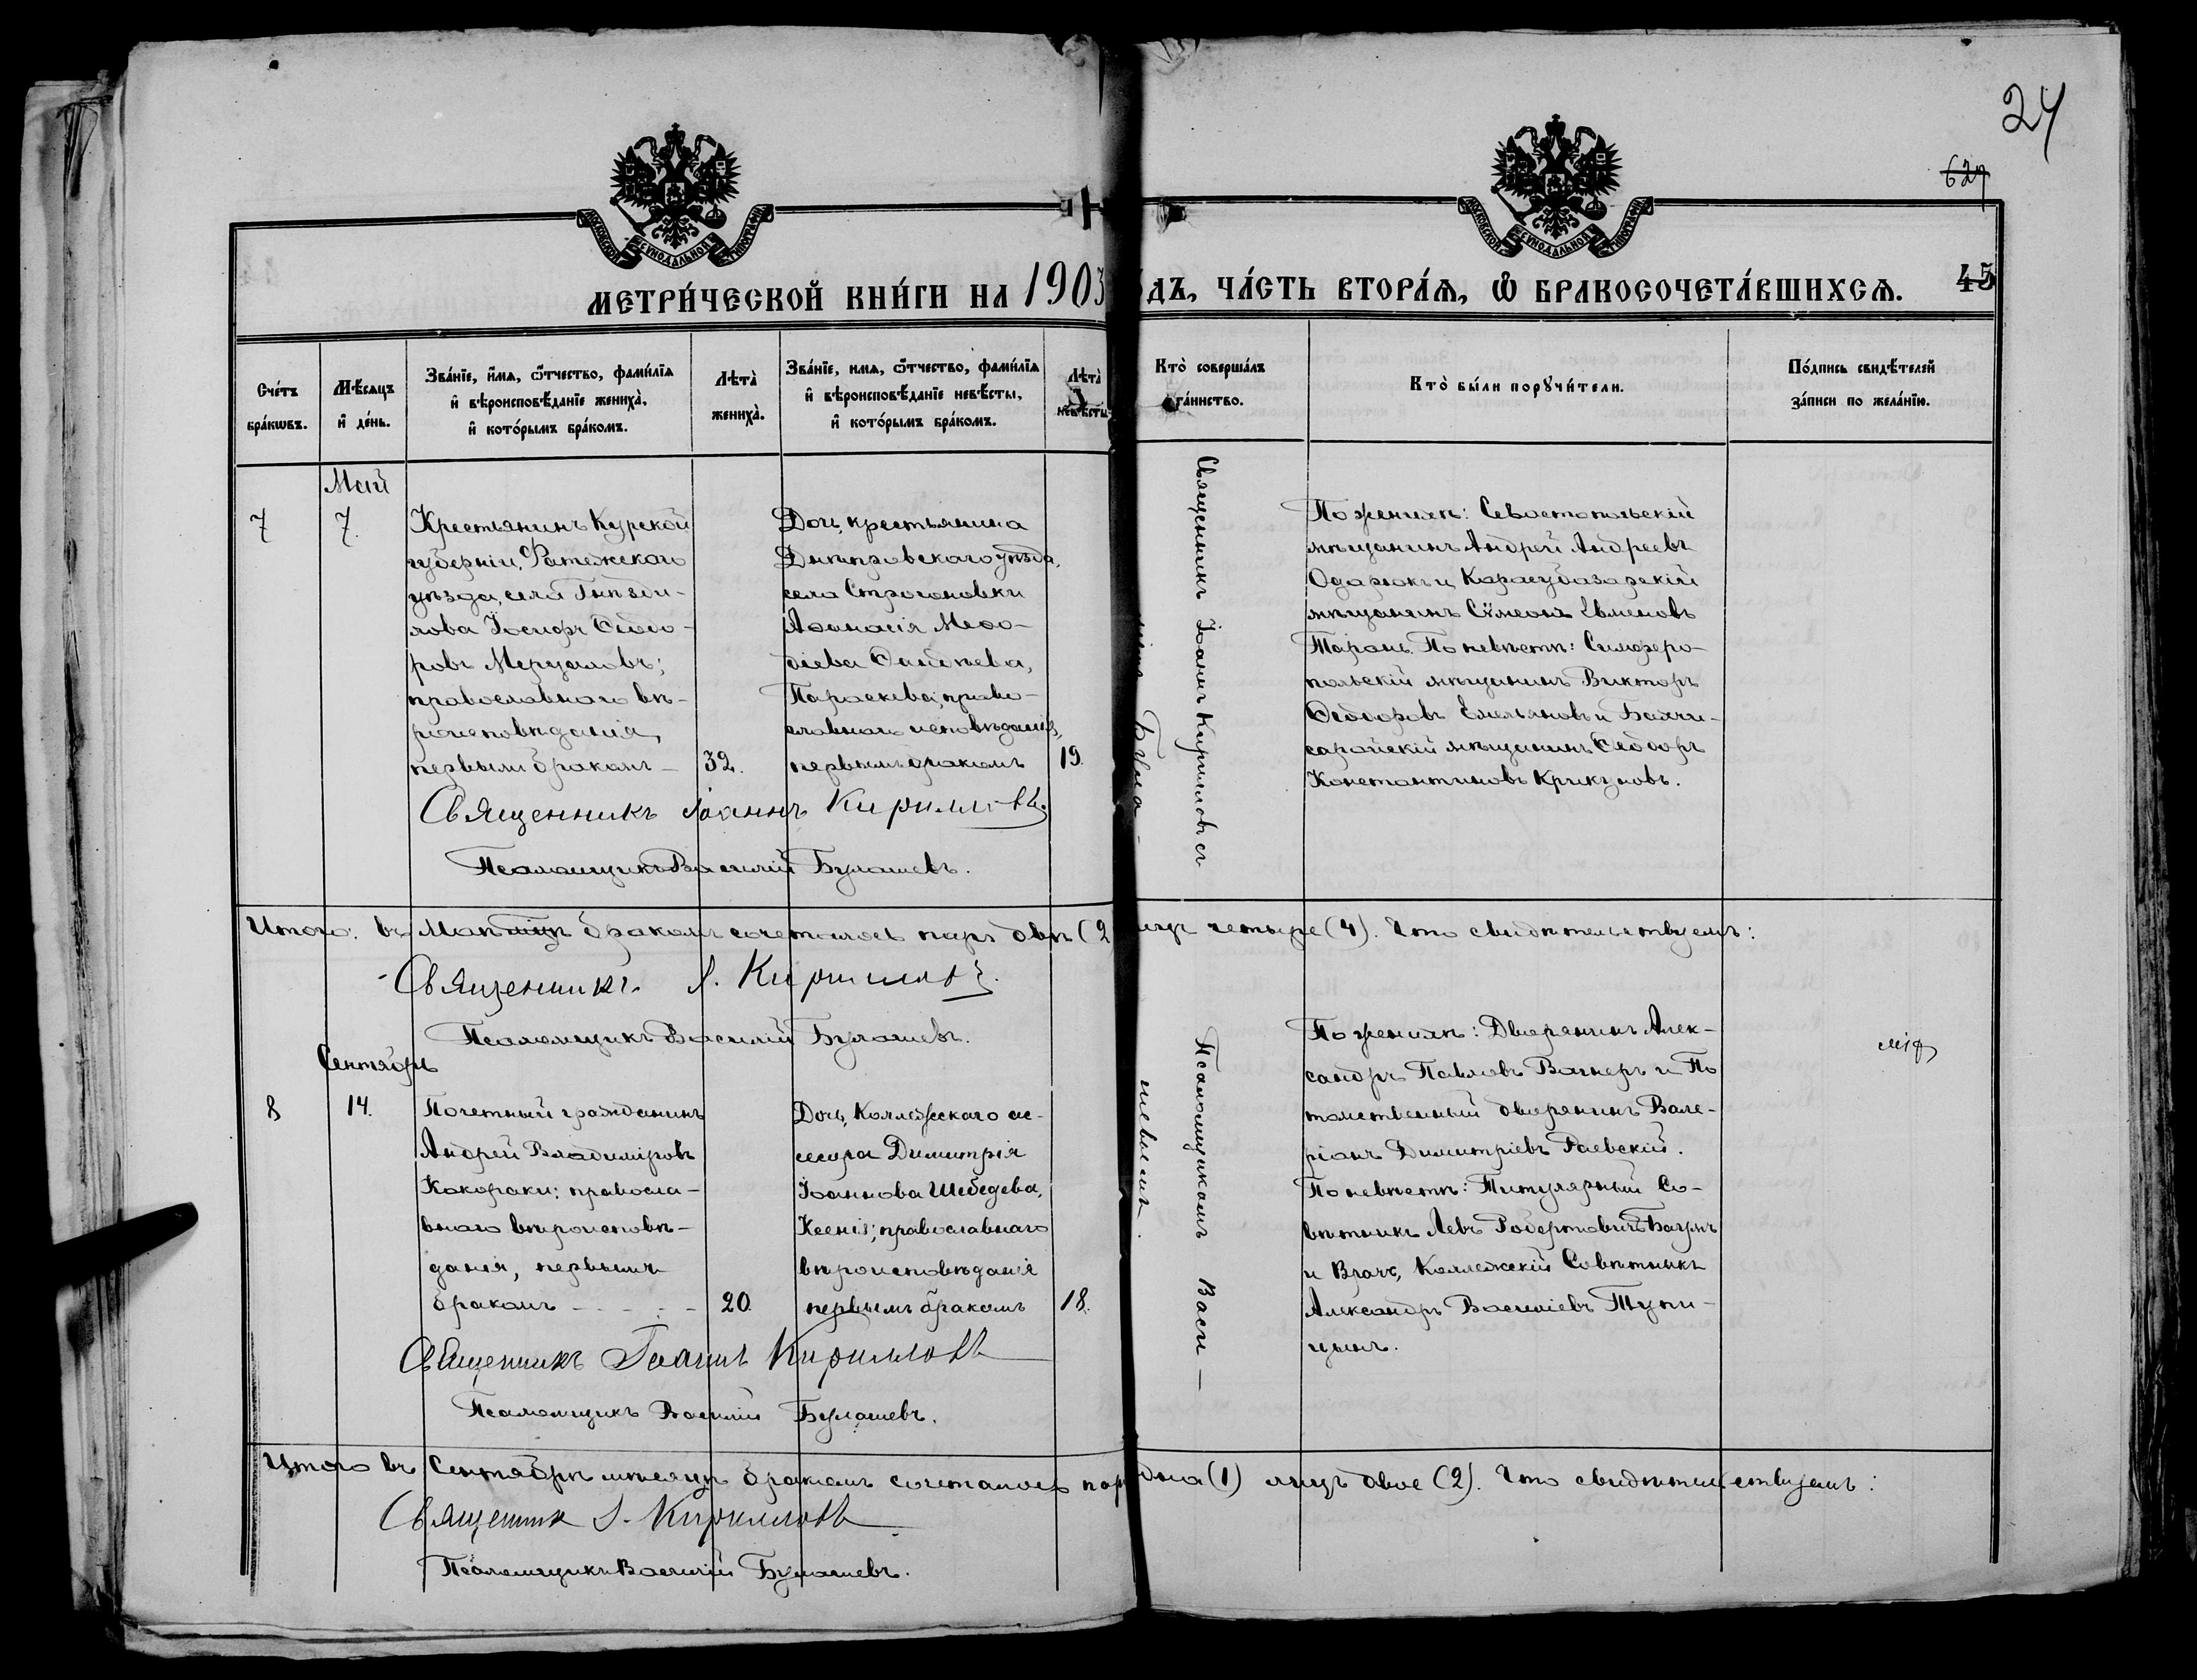 24
627
МОСКОВСКОЙ СѴНОДАЛЬНОЙ ТИПОГРАФІИ
МОСКОВСКОЙ СѴНОДАЛЬНОЙ ТИПОГРАФІИ
МЕТРИ́ЧЕСКОЙ КНИ́ГИ НА 1903
ДЪ, ЧА́СТЬ ВТОРА́Ѧ, Ѽ БРАКОСОЧЕТА́ВШИХСѦ.
45
Сче́тъ бра́кωвъ.
Мѣ́сяцъ и҆ де́нь.
Зва́нїе, и҆́мѧ, ѻ҆́тчество, фами́лїѧ
и҆ вѣроисповѣ́данїе жениха̀,
и҆ кото́рымъ бра́комъ.
Лѣта̀ жениха̀.
Зва́нїе, и҆́мѧ, ѻ҆́тчество, фами́лїѧ
и҆ вѣроисповѣ́данїе невѣ́сты,
и҆ кото́рымъ бра́комъ.
Лѣта̀ невѣ́сты
Кто̀ соверша́лъ
та́инство.
Кто̀ бы́ли порꙋчи́тели.
По́дпись свидѣ́телей
за́писи по жела́нїю.
Май
7
7.
Крестьянинъ Курской
губерніи, Фатежскаго
уѣзда, села Гнѣзди-
лова Іосифъ Ѳеодо-
ровъ Мерцаловъ;
православнаго вѣ-
роисповѣданія,
первымъ бракомъ –
32.
Дочь крестьянина
Днѣпровскаго уѣзда,
села Строгоновки
Аѳанасія Меѳо-
діева
Параскева, право-
славнаго исповѣданія,
первымъ бракомъ
19.
Священникъ Іоаннъ Кирилловъ съ
По женихѣ: Севастопольскій
мѣщанинъ Андрей Андреевъ
Одарюкъ и Карасубазарскій
мѣщанинъ Сѵмеонъ Евменовъ
Таранъ. По невѣстѣ: Симферо-
польскій мѣщанинъ Викторъ
Ѳеодоровъ Емельяновъ и Бахчи-
сарайскій мѣщанинъ Ѳеодоръ
Константиновъ Крикуновъ.
Священникъ Іоаннъ Кирилловъ.
Псаломщикъ Василій Булашевъ.
Итого: въ Маѣ мцѣ бракомъ сочеталось паръ двѣ (2
лицъ четыре (4). Что свидѣтельствуемъ:
Священникъ І. Кирилловъ.
Псаломщикъ Василій Булашевъ.
Сентябрь
8
14.
Почетный гражданинъ
Андрей Владиміровъ
Кокораки; правосла-
внаго вѣроисповѣ-
данія, первымъ
бракомъ - - - -
20.
Дочь Коллежскаго ас-
сесора Димитрія
Іоаннова Шебедева,
Ксенія; православнаго
вѣроисповѣданія
первымъ бракомъ
18.
Псаломщикомъ Васи –
ліемъ
По женихѣ: Дворянинъ Алек-
сандръ Павловъ Вагнеръ и По
томственный дворянинъ Вале-
ріанъ Димитріевъ Раевскій.
По невѣстѣ: Титулярный Со-
вѣтникъ Левъ Робертовичъ
и Врачъ, Коллежскій Совѣтникъ
Александръ Василіевъ Тупи-
цынъ.
Священникъ Іоаннъ Кирилловъ
Псаломщикъ Василій Булашевъ.
Итого въ Сентябрѣ мѣсяцѣ бракомъ сочеталось пар
одна (1) лицъ двое (2). Что свидѣтельствуемъ:
Священник І. Кирилловъ.
Псаломщикъ Василій Булашевъ.